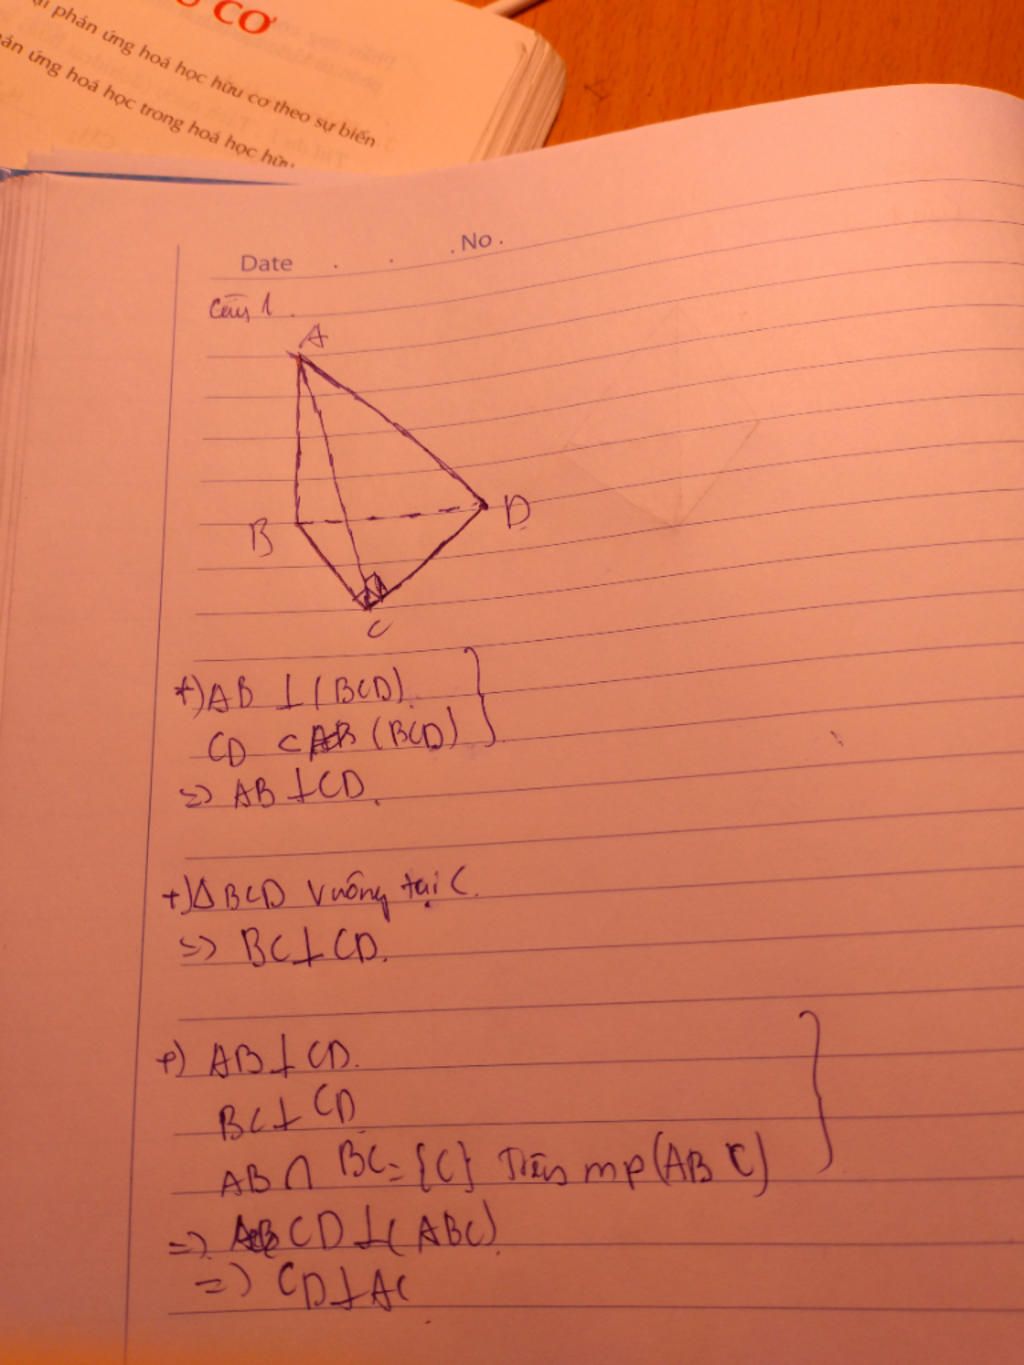 Ơ CƠ
ại phản ứng hoá học hữu cơ theo sự biến
ản ứng hoá học trong hoá học hữu
Date . . . No .
Câu 1 .
A
B
D
C
+) AB ⊥ (BCD).
CD ⊂ (BCD)
=> AB ⊥ CD.
+) Δ BCD vuông tại C.
=> BC ⊥ CD.
+) AB ⊥ CD.
BC ⊥ CD
AB ∩ BC = {C} Trên mp (ABC)
=> CD ⊥ (ABC)
=> CD ⊥ AC